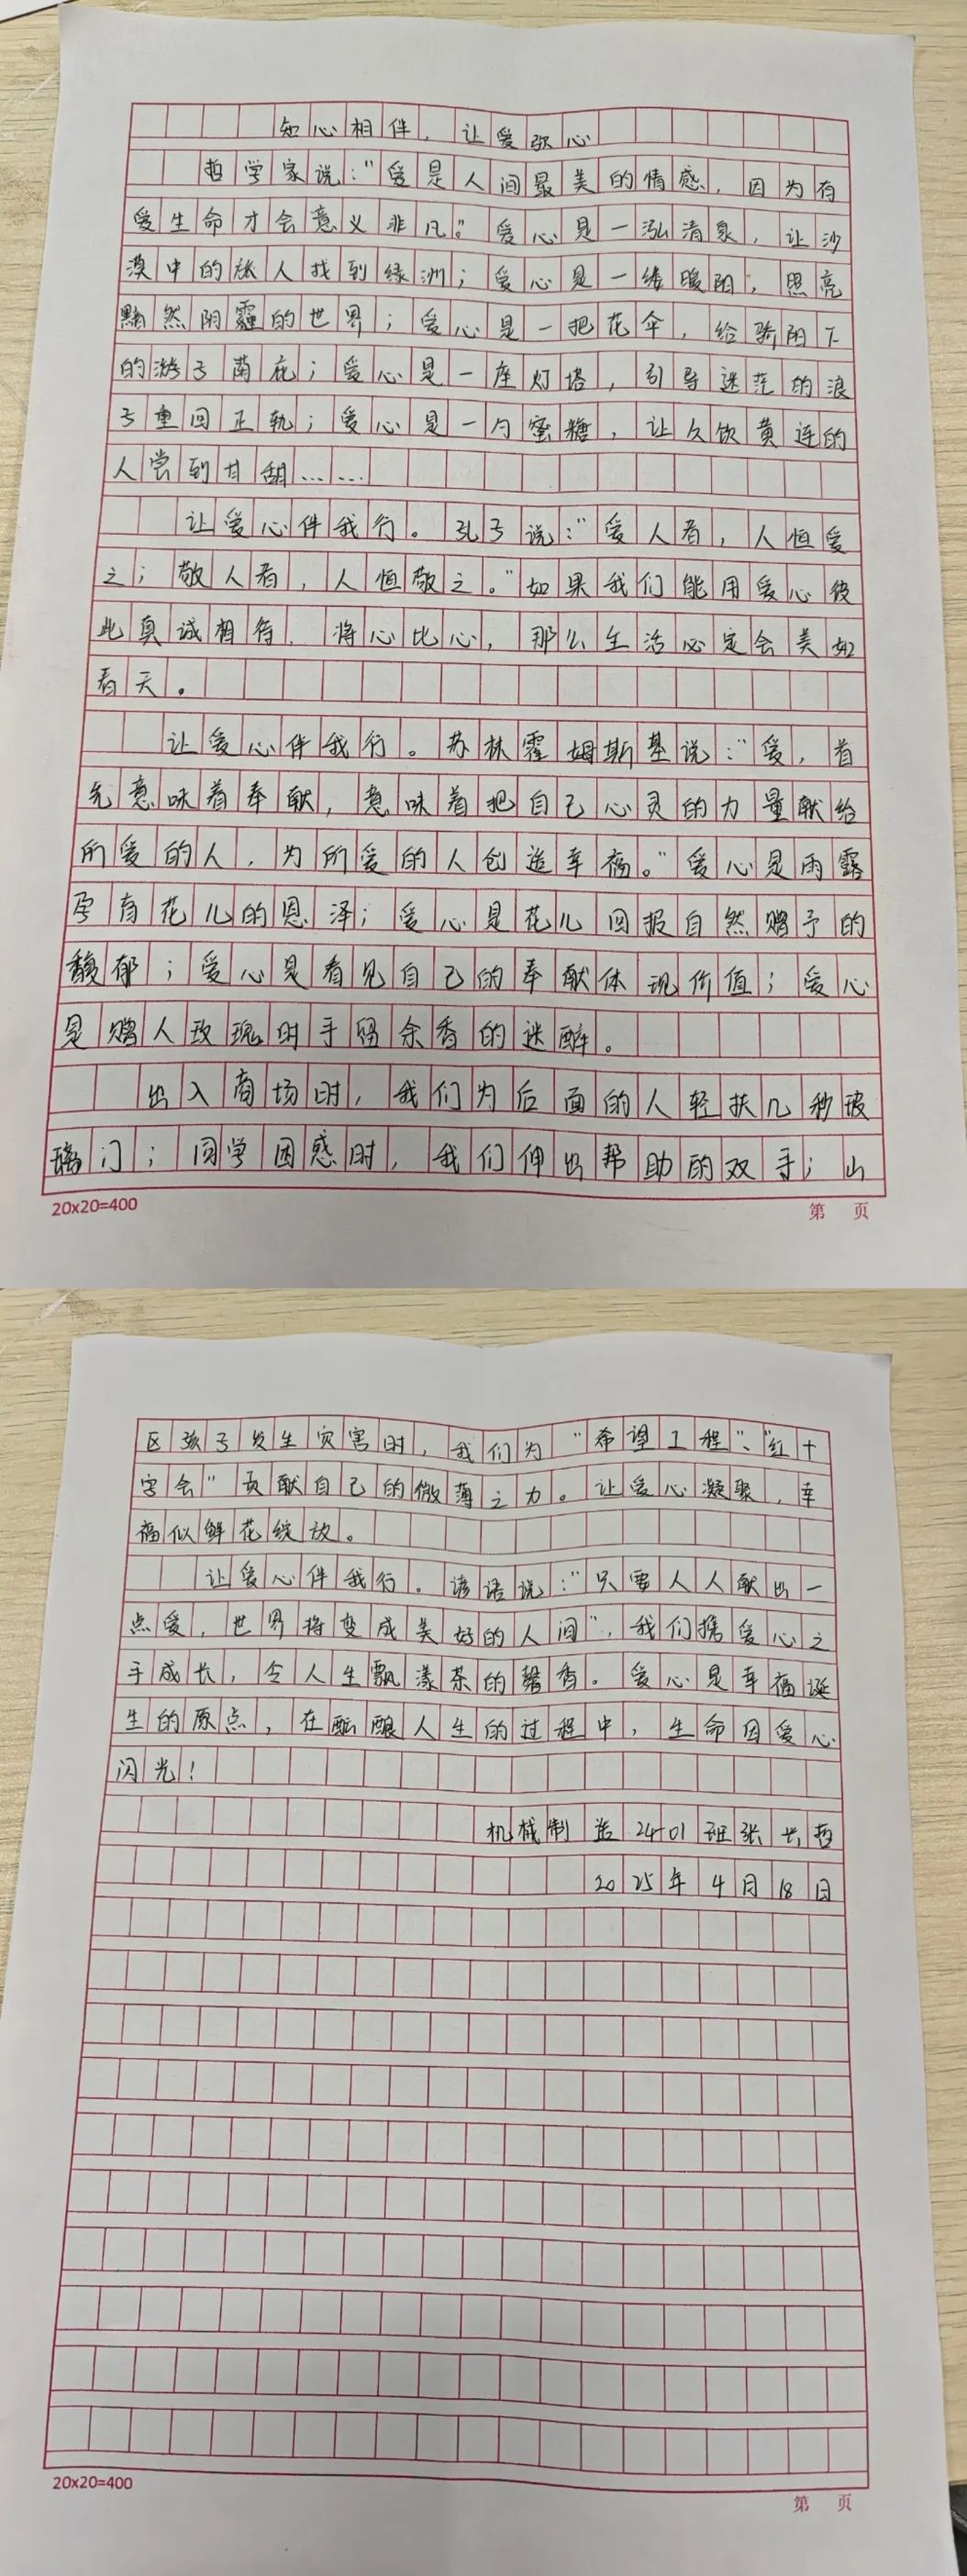 知心相伴，让爱弥心
哲学家说：“爱是人间最美的情感，因为有
爱生命才会意义非凡。”爱心是一泓清泉，让沙
漠中的旅人找到绿洲；爱心是一缕暖阳，照亮
黯然阴霾的世界；爱心是一把花伞，给骄阳下
的游子荫庇；爱心是一座灯塔，引导迷茫的浪
子重回正轨；爱心是一勺蜜糖，让久饮黄连的
人尝到甘甜……
让爱心伴我行。孔子说：“爱人者，人恒爱
之；敬人者，人恒敬之。”如果我们能用爱心彼
此真诚相待，将心比心，那么生活必定会美如
春天。
让爱心伴我行。苏林霍姆斯基说：“爱，首
先意味着奉献，意味着把自己心灵的力量献给
所爱的人，为所爱的人创造幸福。”爱心是雨露
孕育花儿的恩泽；爱心是花儿回报自然赠予的
馥郁；爱心是看见自己的奉献体现价值；爱心
是赠人玫瑰时手留余香的迷醉。
出入商场时，我们为后面的人轻扶几秒玻
璃门；同学困惑时，我们伸出帮助的双手；山
20x20=400
第 页
区孩子发生灾害时，我们为“希望工程”、“红十
字会”贡献自己的微薄之力。让爱心凝聚，幸
福似鲜花绽放。
让爱心伴我行。谚语说：“只要人人献出一
点爱，世界将变成美好的人间”，我们携爱心之
手成长，令人生飘漾茶的馨香。爱心是幸福诞
生的原点，在酝酿人生的过程中，生命因爱心
闪光！
机械制造2401班张长哲
2025年4月18日
20x20=400
第 页